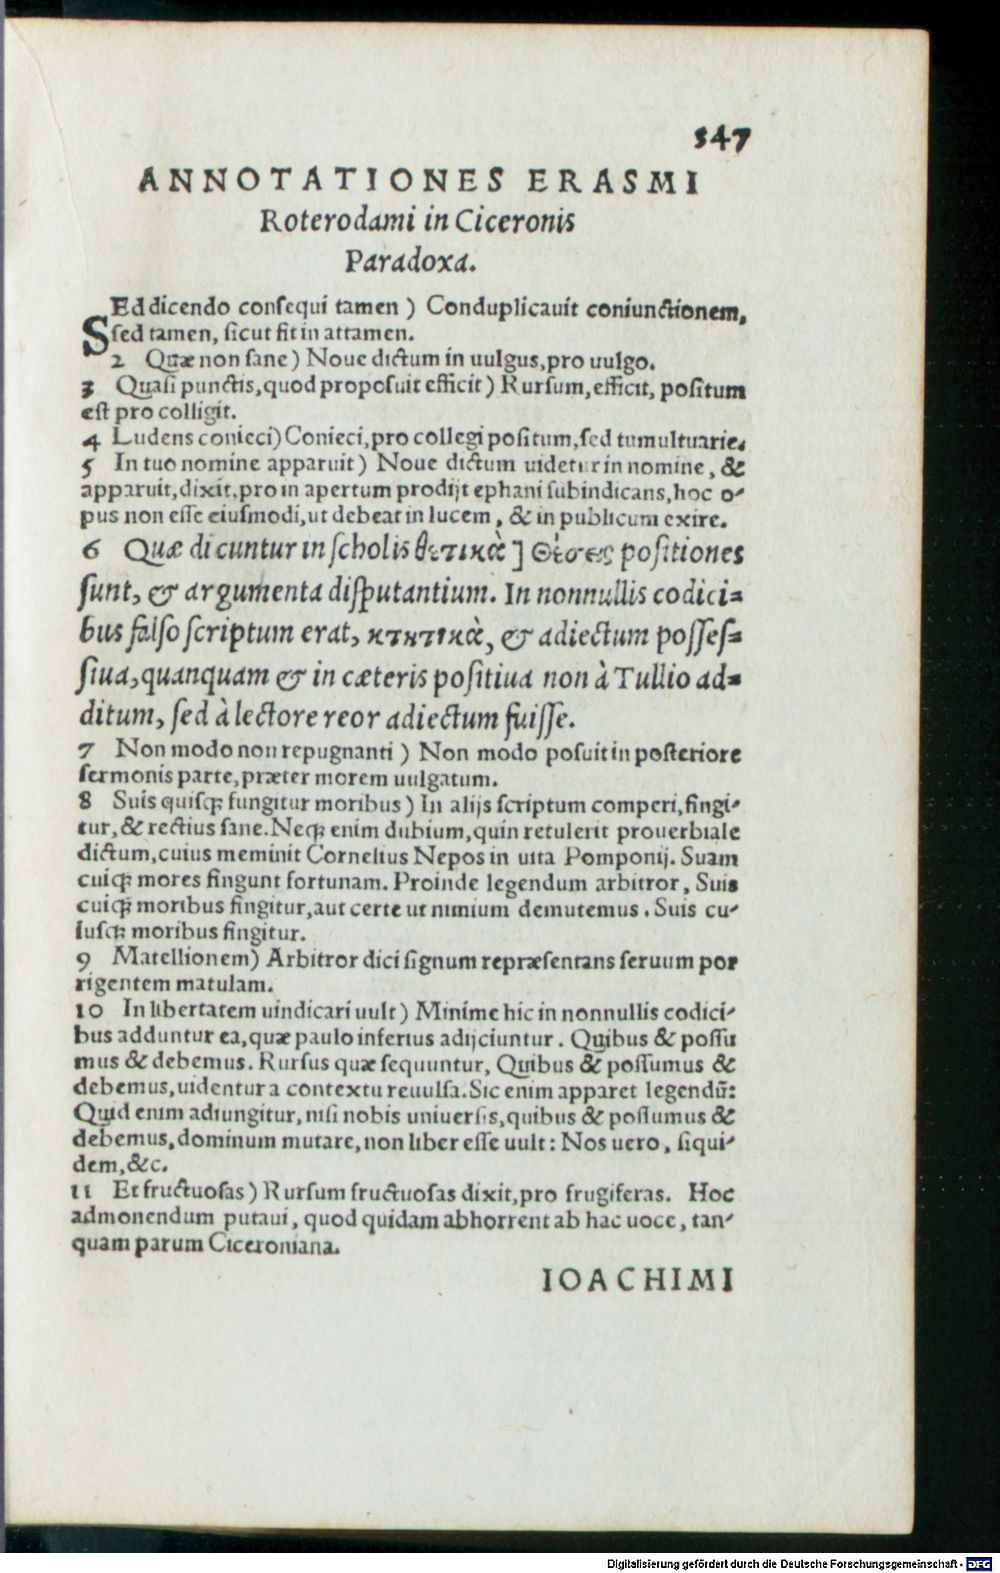 347
ANNOTATIONES ERASMI
Roterodami in Ciceronis
Paradoxa.
SEd dicendo consequi tamen ) Conduplicauit coniunctionem,
sed tamen, sicut fit in attamen.
2 Quæ non sane ) Noue dictum in uulgus, pro uulgo.
3 Quasi punctis, quod proposuit efficit ) Rursum, efficit, positum
est pro colligit.
4 Ludens conieci) Conieci, pro collegi positum, sed tumultuarie.
5 In tuo nomine apparuit ) Noue dictum uidetur in nomine, &
apparuit, dixit, pro in apertum prodijt ephani subindicans, hoc o-
pus non esse eiusmodi, ut debeat in lucem, & in publicum exire.
6 Quæ dicuntur in scholis θετικὰ ] Θέσεις positiones
sunt, & argumenta disputantium. In nonnullis codici=
bus falso scriptum erat, κτητικὰ, & adiectum posses=
siua, quanquam & in cæteris positiua non à Tullio ad=
ditum, sed à lectore reor adiectum fuisse.
7 Non modo non repugnanti ) Non modo posuit in posteriore
sermonis parte, præter morem uulgatum.
8 Suis quisq; fungitur moribus ) In alijs scriptum comperi, fingi-
tur, & rectius sane. Neq; enim dubium, quin retulerit prouerbiale
dictum, cuius meminit Cornelius Nepos in uita Pomponij. Suam
cuiq; mores fingunt fortunam. Proinde legendum arbitror, Suis
cuiq; moribus fingitur, aut certe ut nimium demutemus. Suis cu-
iusq; moribus fingitur.
9 Matellionem) Arbitror dici signum repræsentans seruum por
rigentem matulam.
10 In libertatem uindicari uult ) Minime hic in nonnullis codici-
bus adduntur ea, quæ paulo inferius adijciuntur. Quibus & possu
mus & debemus. Rursus quæ sequuntur, Quibus & possumus &
debemus, uidentur a contextu reuulsa. Sic enim apparet legendũ:
Quid enim adiungitur, nisi nobis uniuersis, quibus & possumus &
debemus, dominum mutare, non liber esse uult: Nos uero, siqui-
dem, &c.
11 Et fructuosas ) Rursum fructuosas dixit, pro frugiferas. Hoc
admonendum putaui, quod quidam abhorrent ab hac uoce, tan-
quam parum Ciceroniana.
IOACHIMI
Digitalisierung gefördert durch die Deutsche Forschungsgemeinschaft - DFG